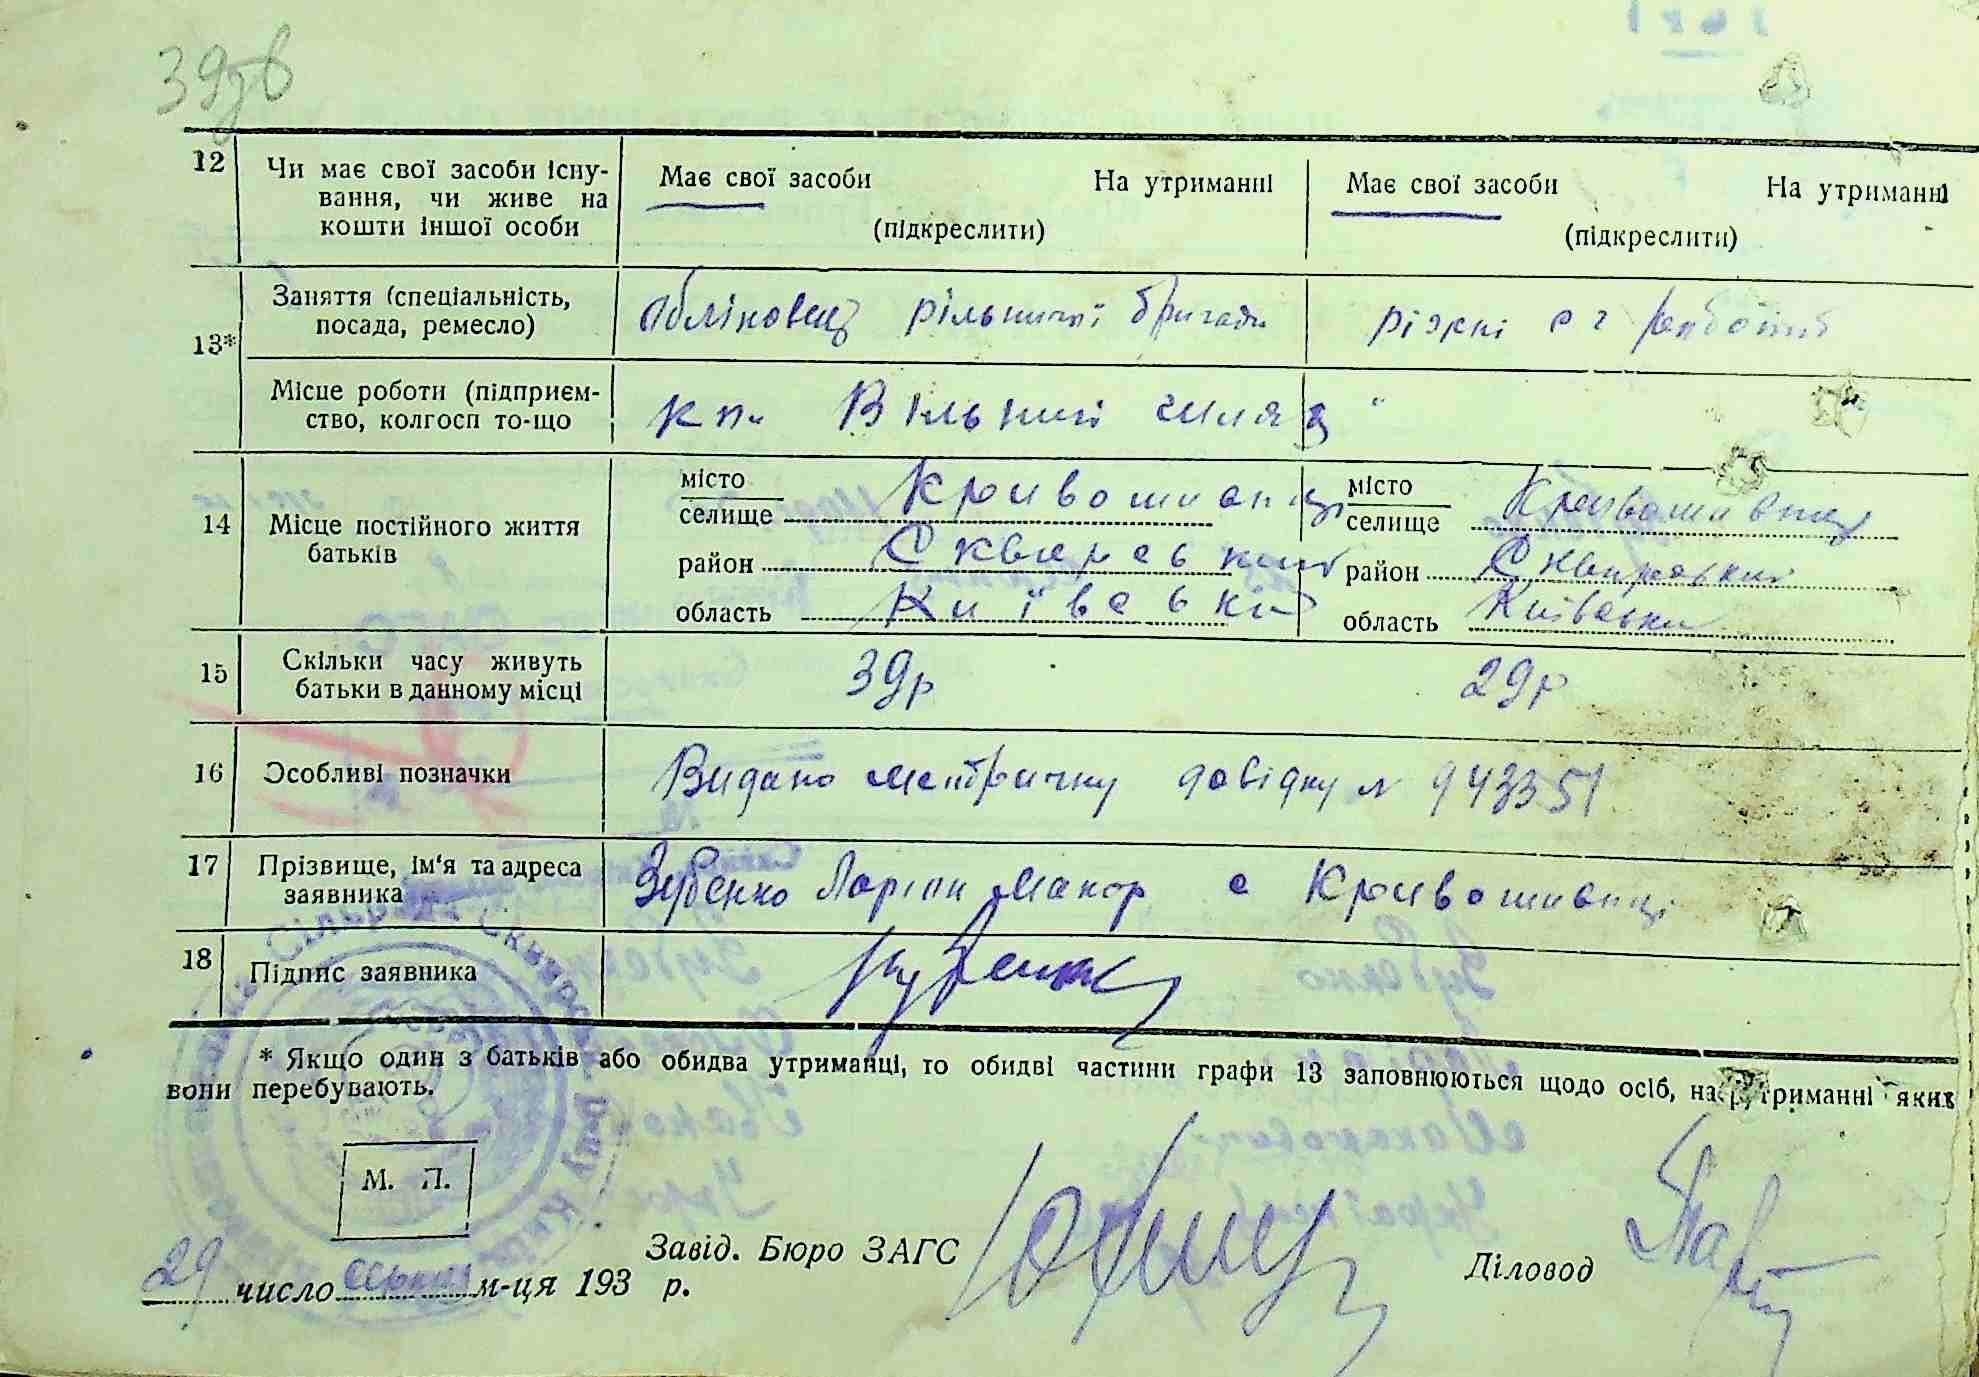 12 Чи має свої засоби існу-
вання, чи живе на
кошти іншої особи
Має свої засоби На утриманні
(підкреслити)
Має свої засоби На утриманні
(підкреслити)
13* Заняття (спеціальність,
посада, ремесло)
обліковець рільничої бригади
різні с г
Місце роботи (підприєм-
ство, колгосп то-що
Вільний шлях "
14 Місце постійного життя
батьків
місто
селище Кривошиєнці
район Сквирський
область Київській
місто
селище Кривошиєнці
район Сквирський
область Київська
15 Скільки часу живуть
батьки в данному місці
39р 29р
16 Особливі позначки
Видано метричну довідку № 943351
17 Прізвище, ім'я та адреса
заявника
Зубенко Ларіон Макар с Кривошиєнці
18 Підпис заявника
* Якщо один з батьків або обидва утриманці, то обидві частини графи 13 заповнюються щодо осіб, на утриманні яких
вони перебувають.
М. П.
Завід. Бюро ЗАГС
Діловод
29 число м-ця 193 р.